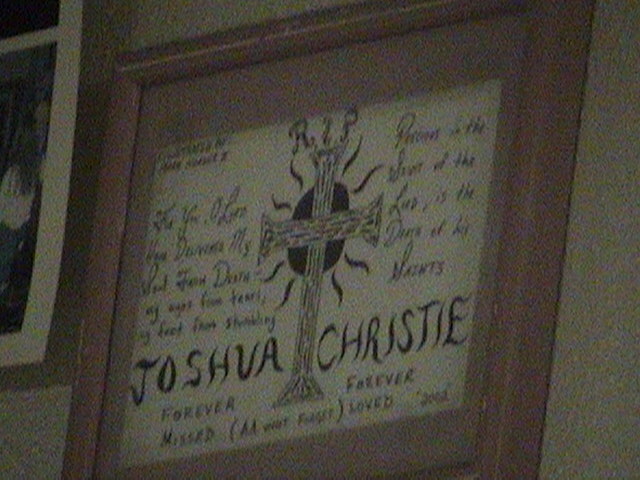 R.I.P
For You, O Lord
Have Delivered My
Soul From Death
my eyes from tears,
my feet from stumbling
Precious in the
Sight of the
Lord, is the
Death of his
Saints
JOSHUA CHRISTIE
FOREVER
MISSED
FOREVER
LOVED
"2002"